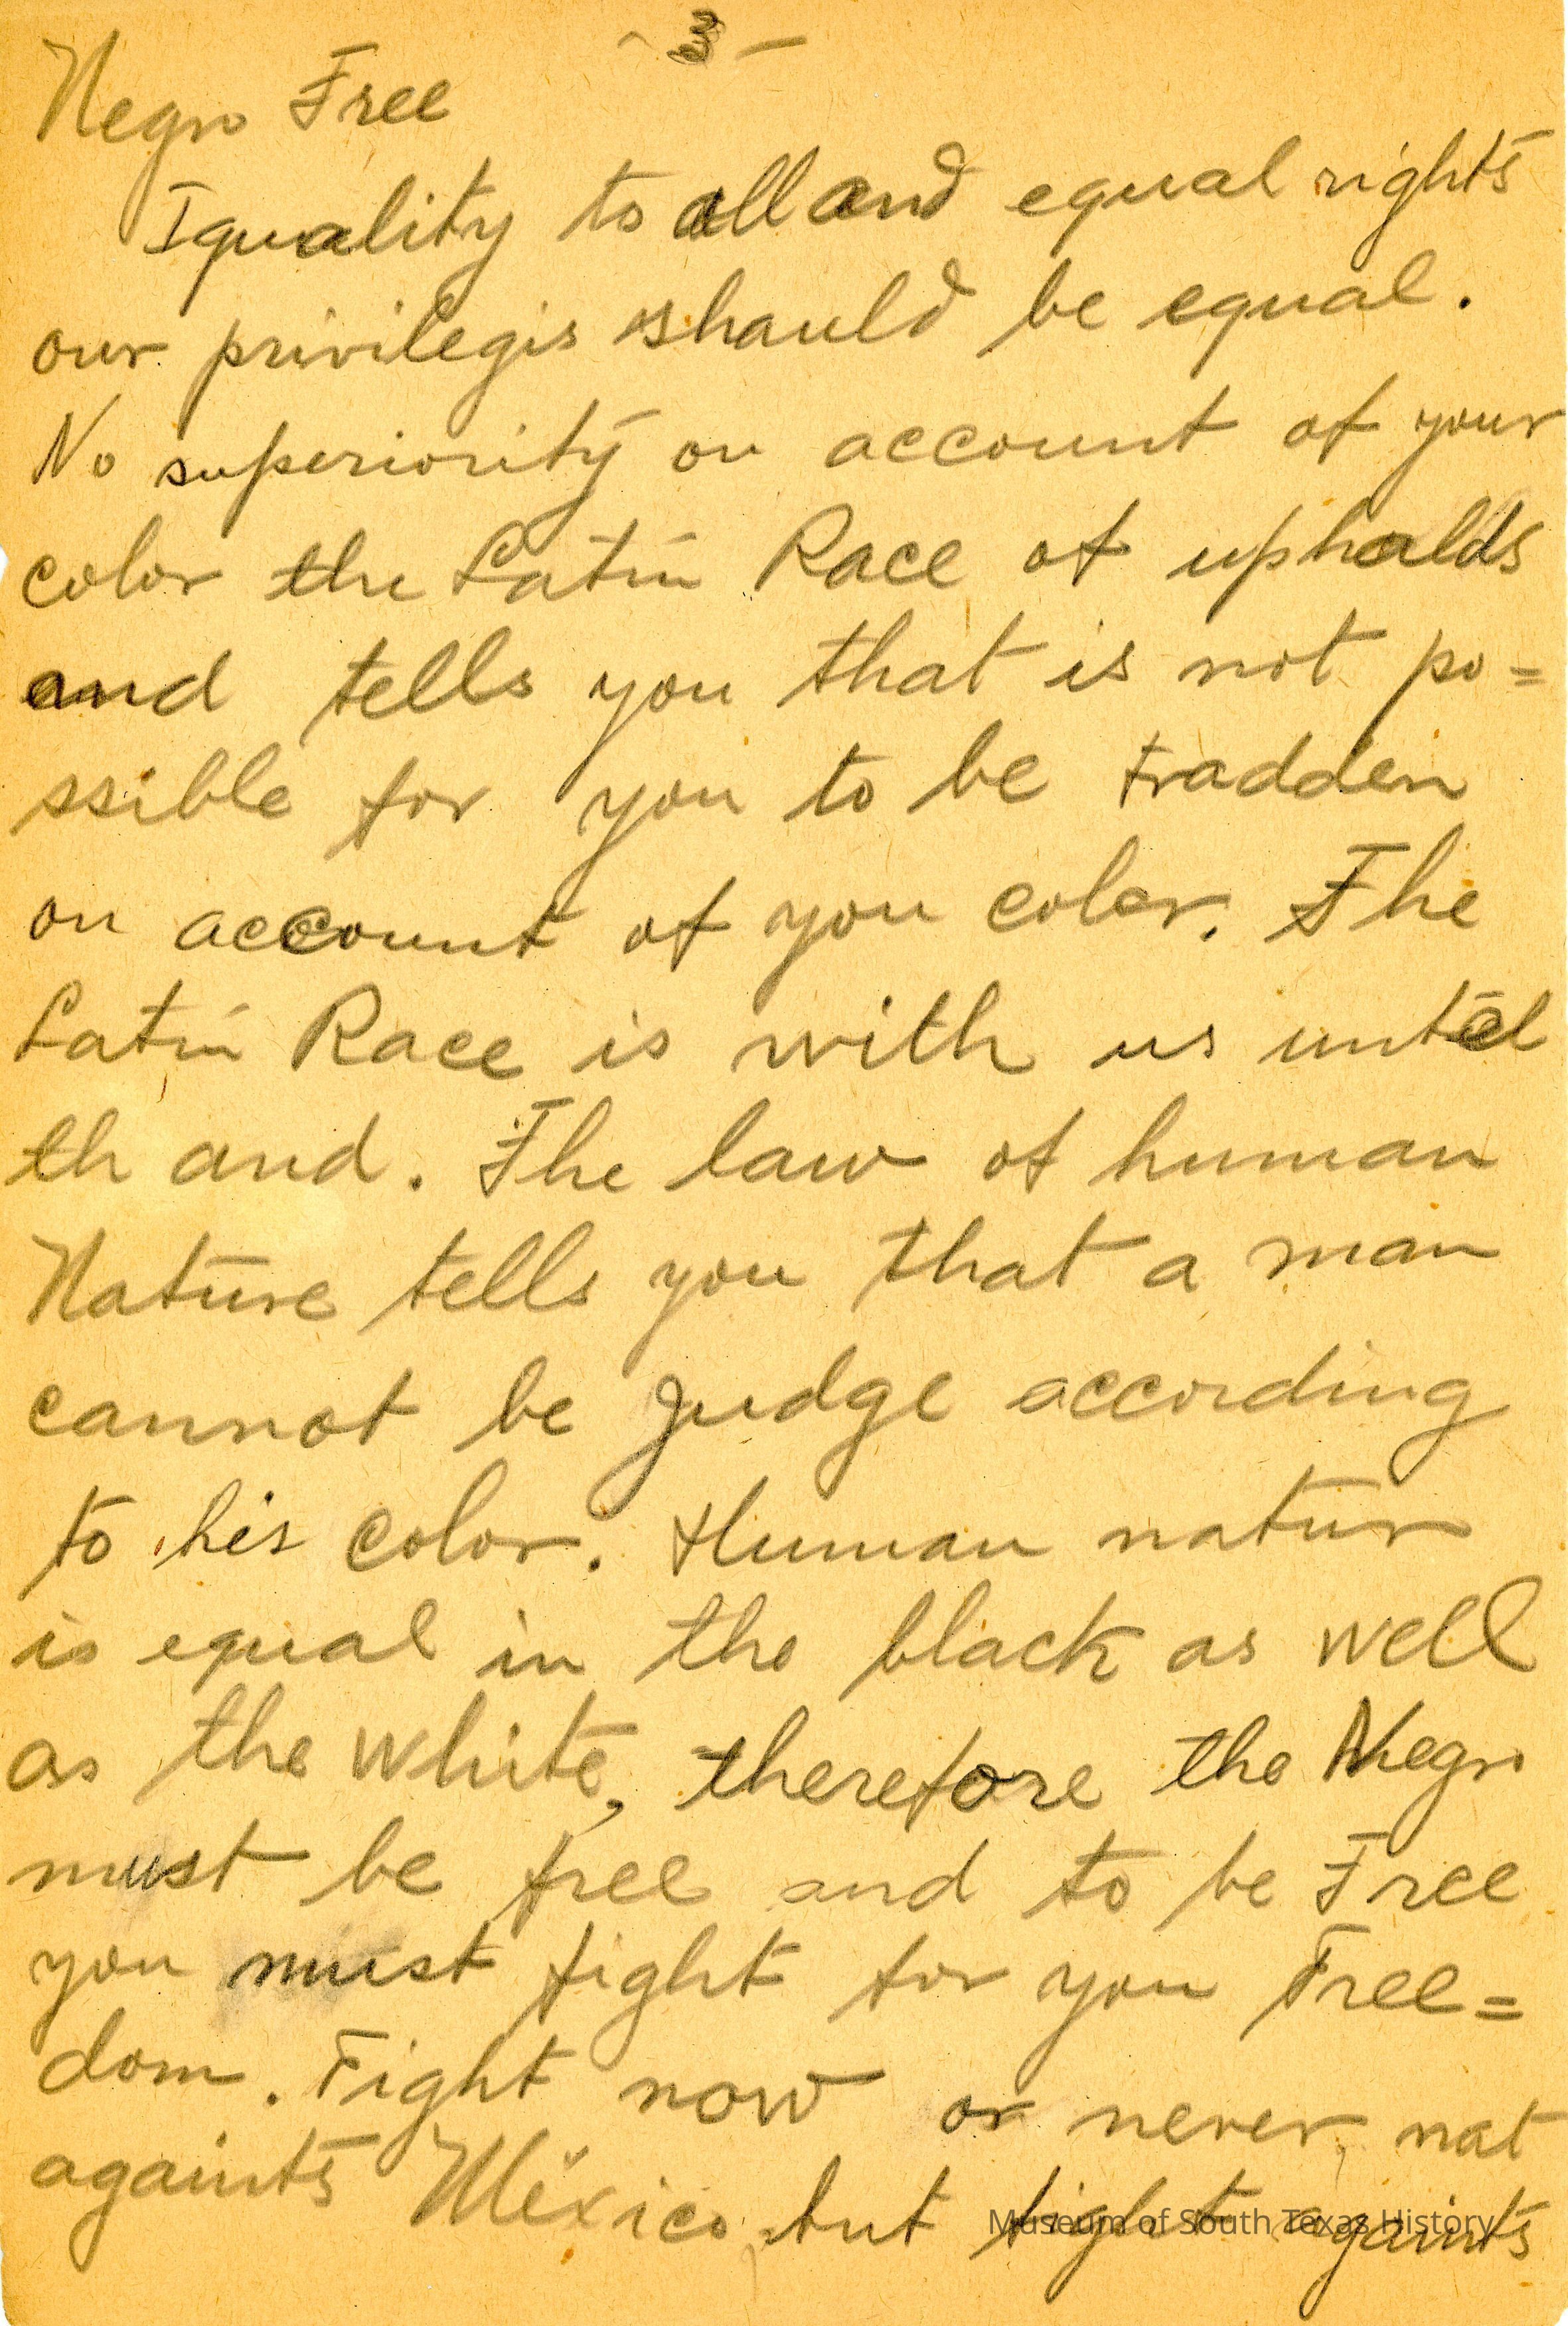 - 3 -
Negro Free
Iquality to all and equal rights
our privilegis should be equal.
No superiority on account of your
color the Latin Race of uphalds
and tells you that is not po=
ssible for you to be tradden
on account of you color. The
Latin Race is with us until
th and. The law of human
Nature tells you that a man
cannot be Judge according
to his color. Human natur
is equal in the black as well
as the white, therefore the Negro
must be free and to be Free
you must fight for you Free=
dom. Fight now or never, nat
againts México, but fight againts
Museum of South Texas History